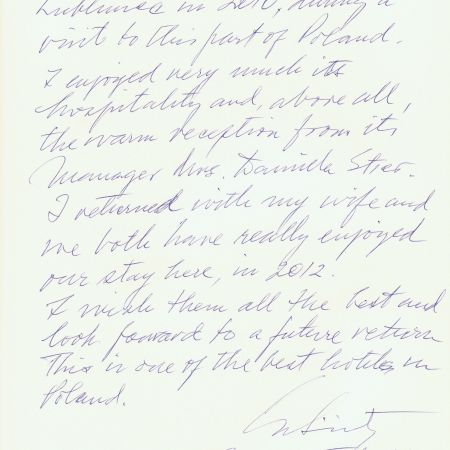 in 2010, during a
visit to this part of Poland.
I enjoyed very much its
hospitality and, above all,
the warm reception from its
Manager Mrs. Daniela
I returned with my wife and
we both have really enjoyed
our stay here, in 2012.
I wish them all the best and
look forward to a future return
This is one of the best hotels in
Poland.